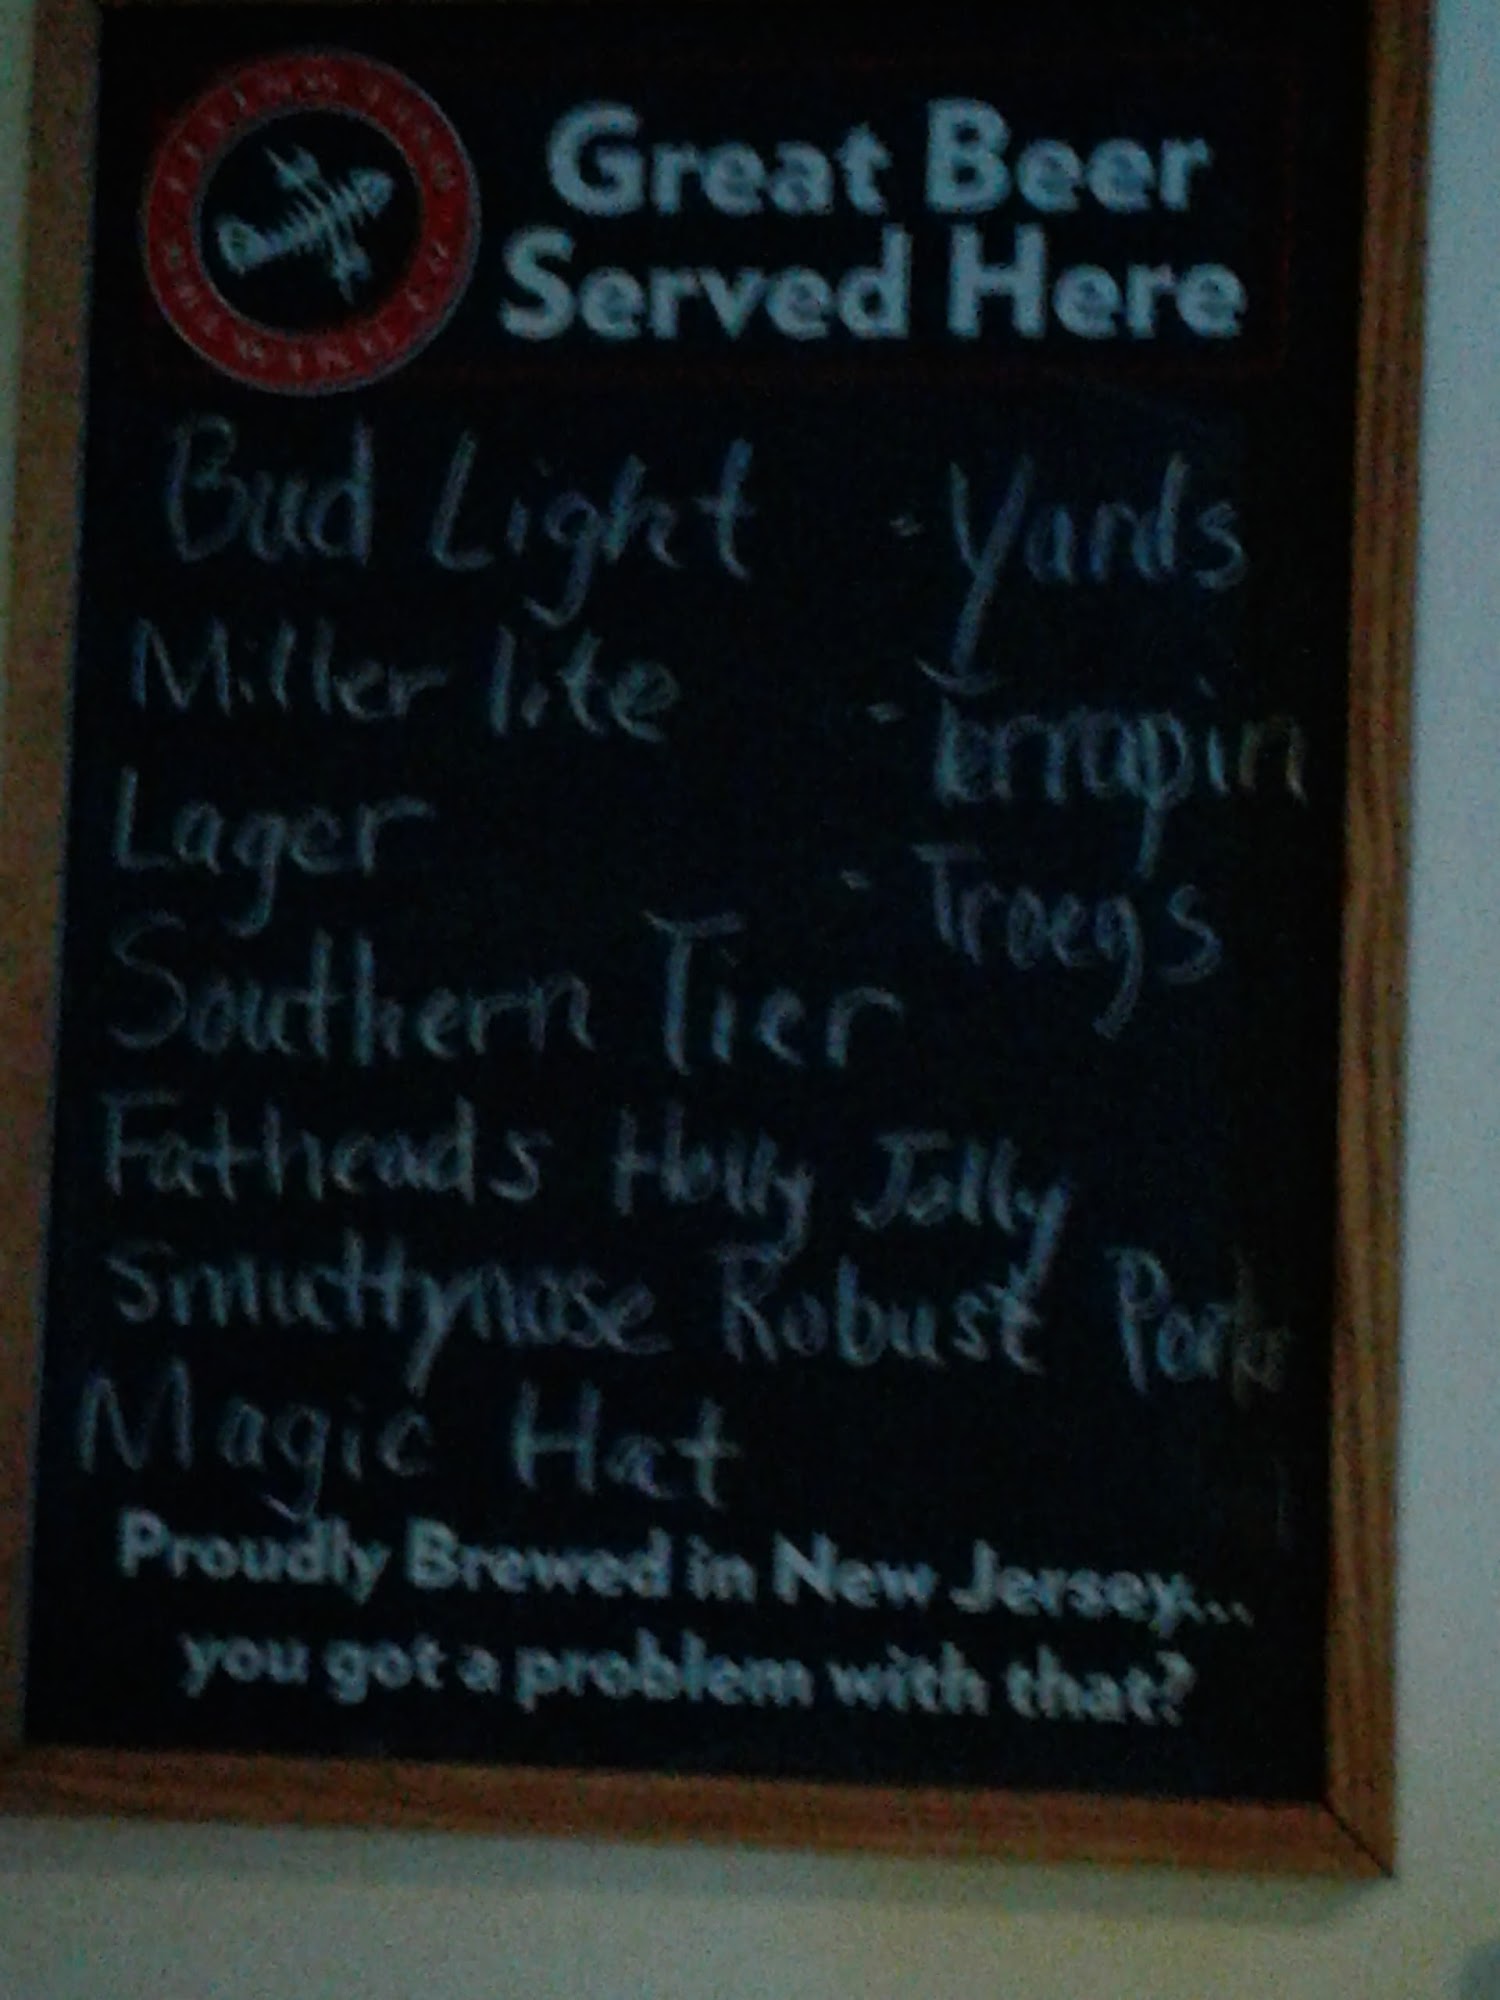 Great Beer
Served Here
Bud Light
Miller lite
Lager
Southern Tier
Fatheads Holly Jolly
Smuttynose Robust Porter
Magic Hat
- Yards
- Terrapin
- Troegs
Proudly Brewed in New Jersey...
you got a problem with that?